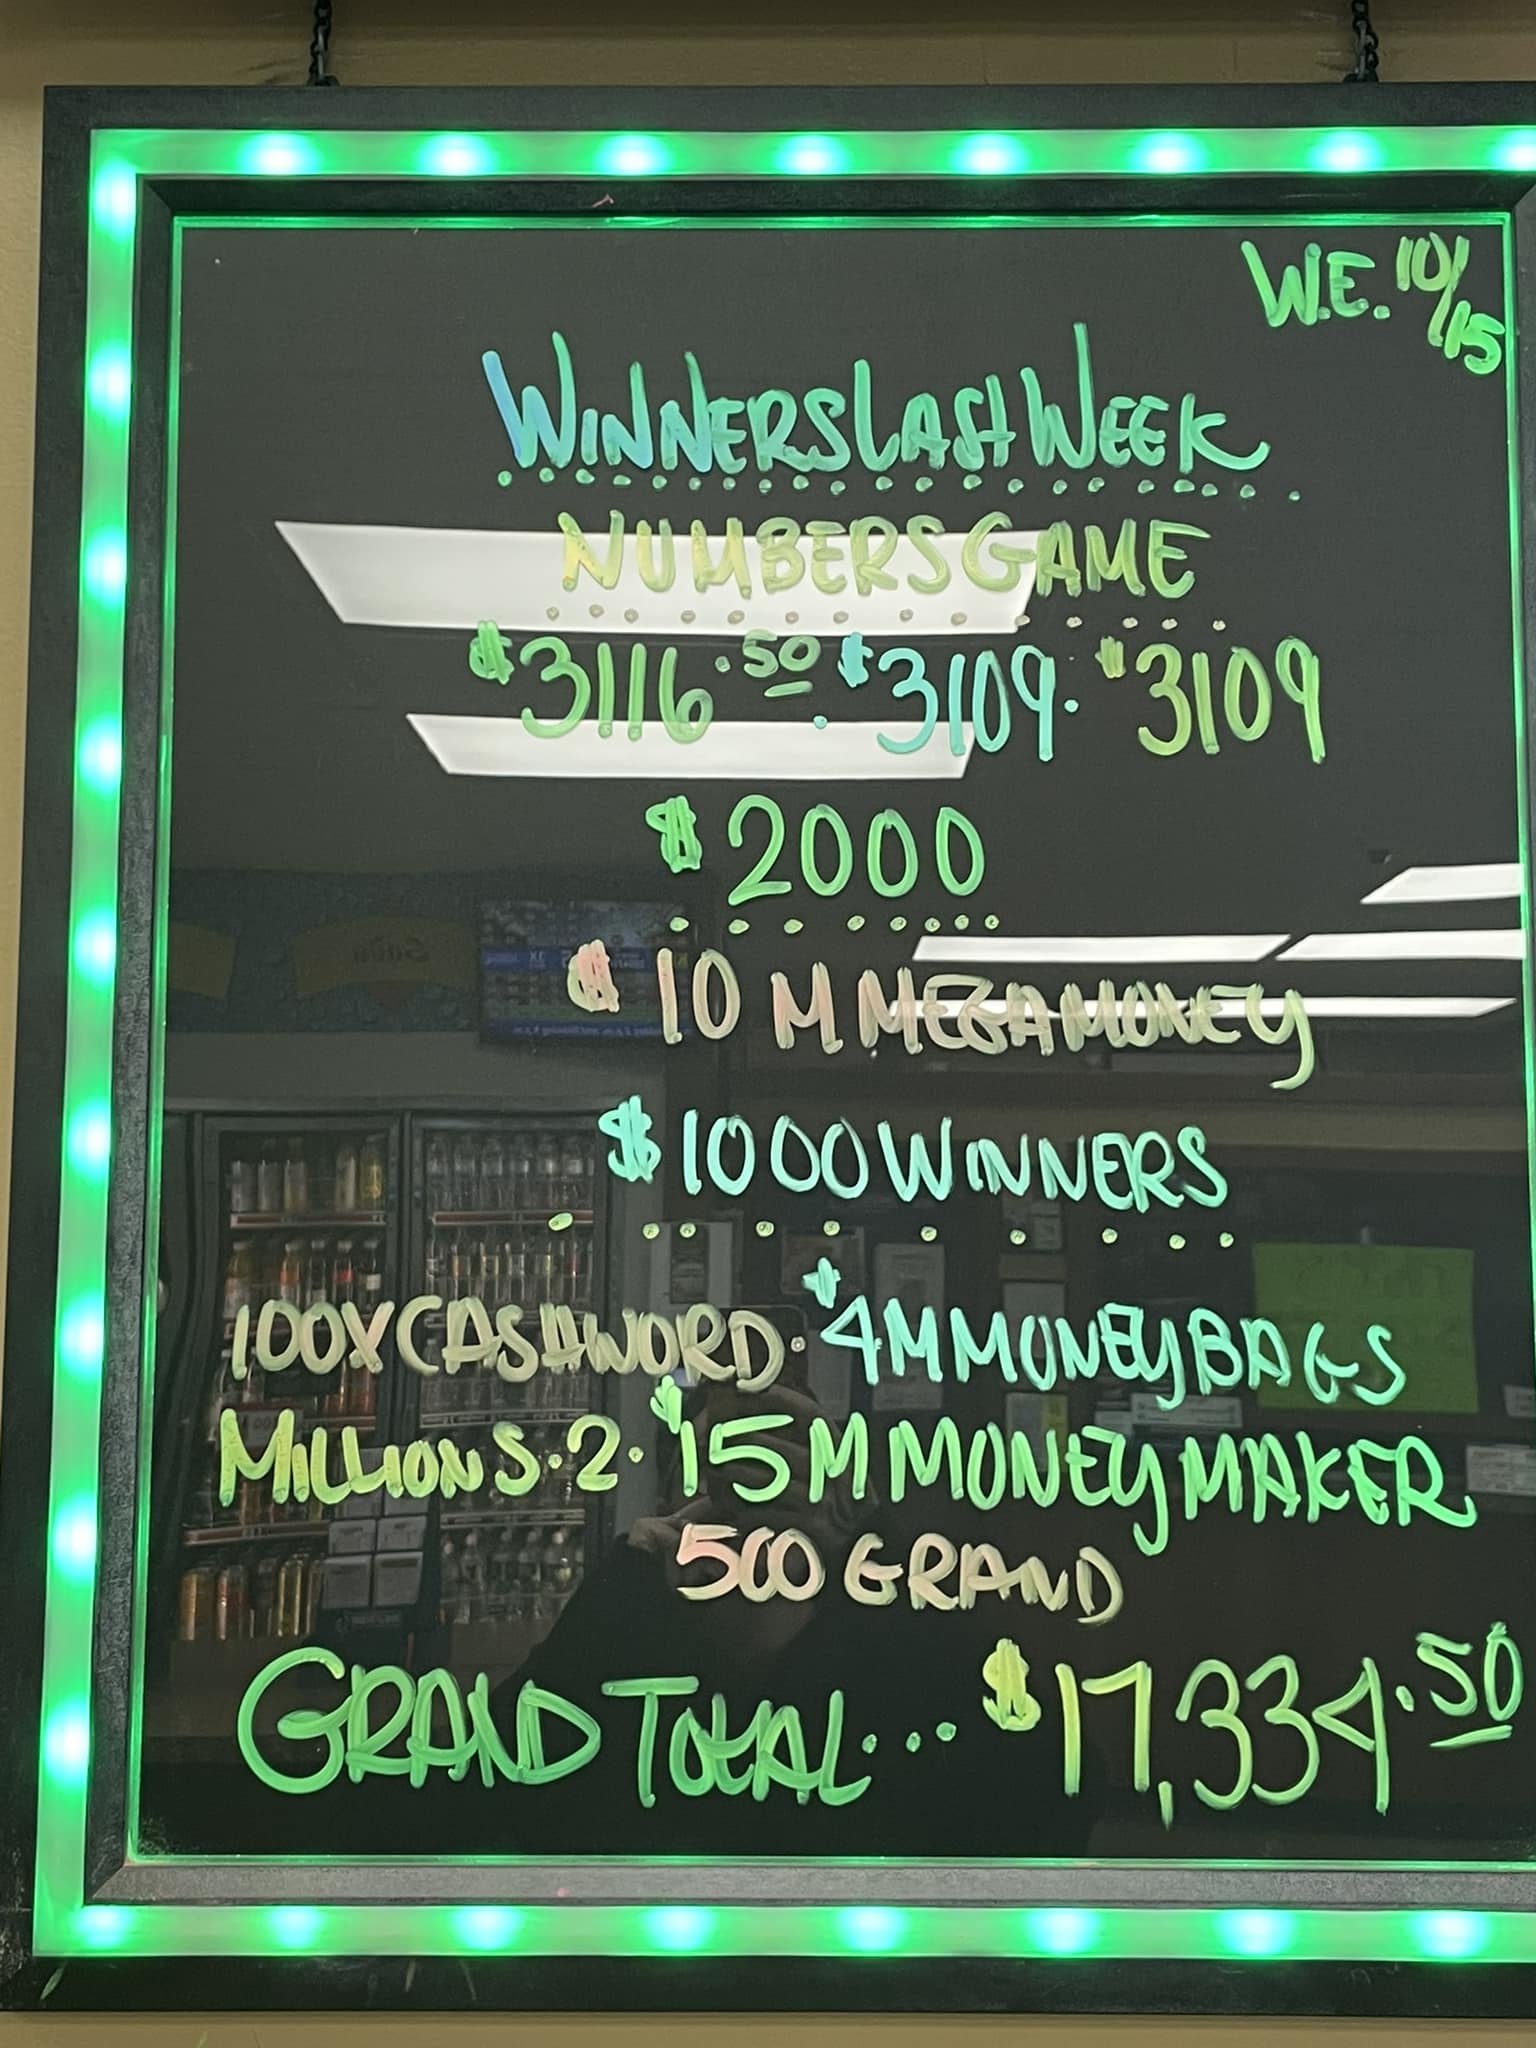 W.E. 10/15
WINNERS LAST WEEK
NUMBERS GAME
$3116.50 . $3109. $3109
$2000
$10M MEGAMONEY
$1000 WINNERS
100X CASHWORD. $4M MONEYBAGS
MILLIONS.2. $15M MONEYMAKER
500 GRAND
GRAND TOTAL... $17,334.50